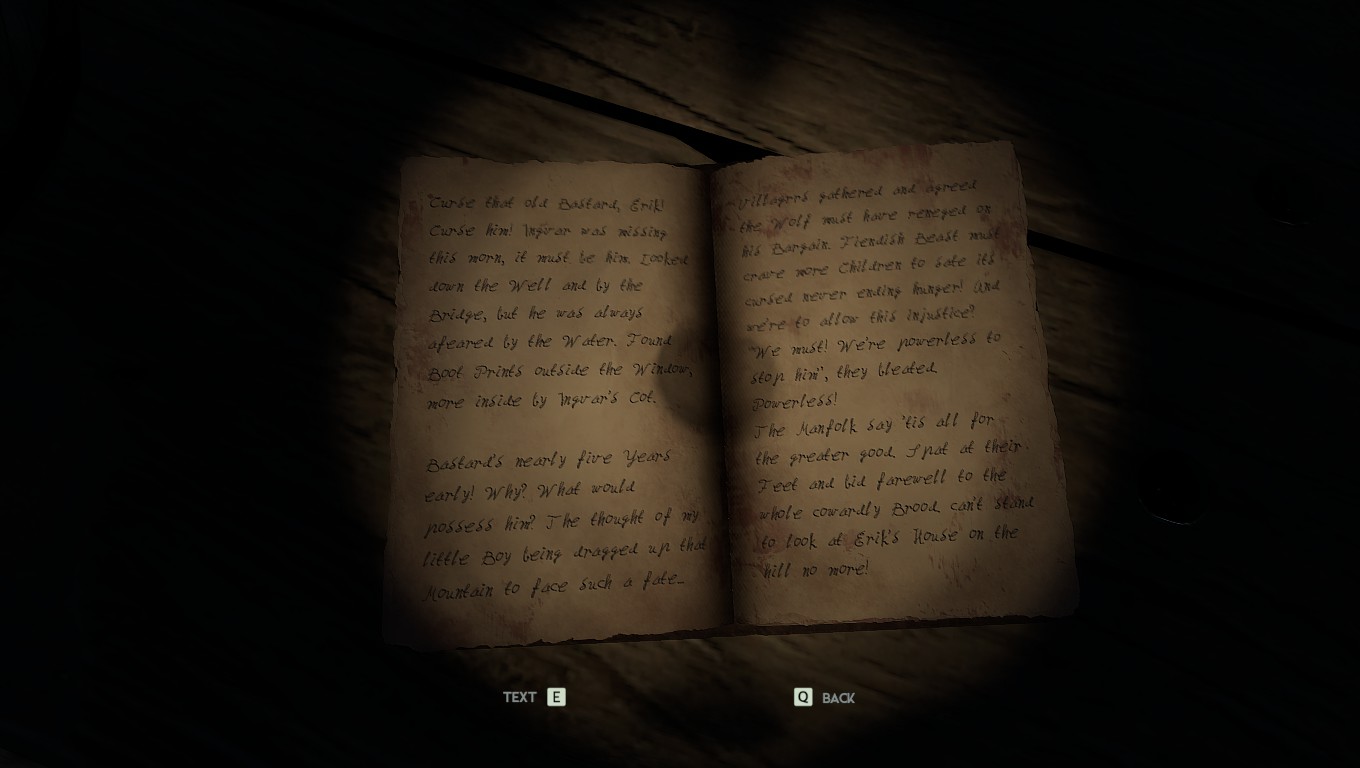 Curse that old Bastard, Erik!
Curse him! Ingvar was missing
this morn, it must be him. Looked
down the Well and by the
Bridge, but he was always
afeared by the Water. Found
Boot Prints outside the Window,
more inside by Ingvar's Cot.
Bastard's nearly five Years
early! Why? What would
possess him? The thought of my
little Boy being dragged up that
Mountain to face such a fate...
Villagrrs gathered and agreed
the Wolf must have reneged on
his Bargain. Fiendish Beast must
crave more Children to sate its
cursed never ending hunger! And
we're to allow this injustice?
"We must! We're powerless to
stop him", they bleated.
Powerless!
The Manfolk say 'tis all for
the greater good. I spat at their
Feet and bid farewell to the
whole cowardly Brood. can't stand
to look at Erik's House on the
hill no more!
TEXT E
Q BACK